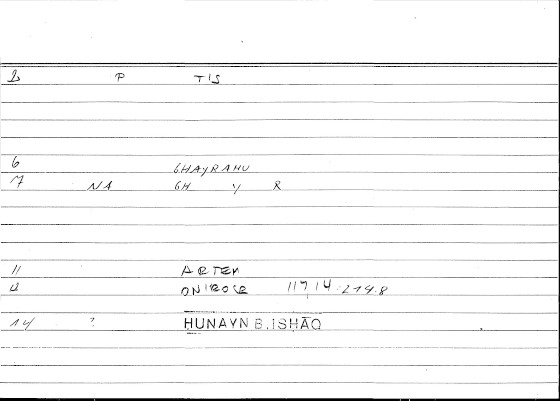 2 P TIS
6 GHAYRAHU
7 NA GH Y R
11 ARTEM
12 ONIROCR 117,14 - 214.8
14 ? HUNAYN B. ISHĀQ